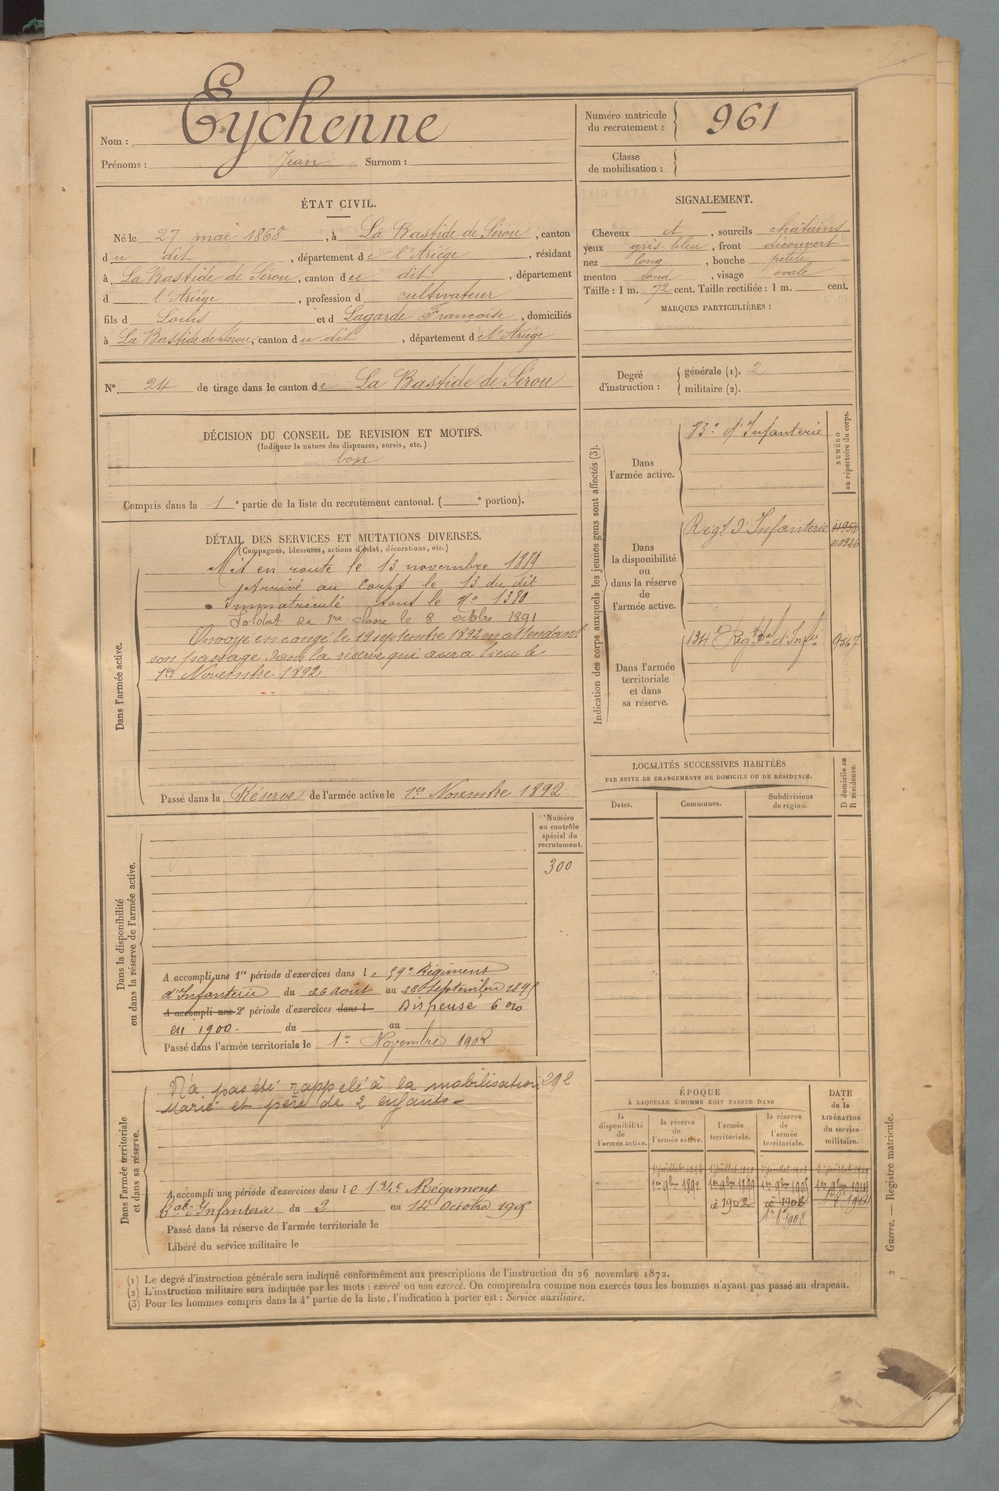 Nom : Eychenne
Prénoms : Jean Surnom :
Numéro matricule du recrutement : 961
Classe de mobilisation :
ÉTAT CIVIL.
Né le 27 mai 1868, à La Bastide de Sérou, canton
du dit, département de l'Ariége, résidant
à La Bastide de Sérou, canton du dit, département
d l'Ariége, profession d cultivateur
fils d Louis et d Lagarde Francoise, domiciliés
à La Bastide de Serou, canton du dit, département de l'Ariége
N° 24 de tirage dans le canton de La Bastide de Sérou
SIGNALEMENT.
Cheveux et, sourcils châtains
yeux gris bleu, front découvert
nez long, bouche petite
menton rond, visage ovale
Taille : 1 m. 72 cent. Taille rectifiée : 1 m. cent.
MARQUES PARTICULIÈRES :
Degré d'instruction : générale (1). 2
militaire (2).
DÉCISION DU CONSEIL DE REVISION ET MOTIFS.
(Indiquer la nature des dispenses, sursis, etc.)
bon
Compris dans la 1e partie de la liste du recrutement cantonal. ( e portion).
DÉTAIL DES SERVICES ET MUTATIONS DIVERSES.
(Campagnes, blessures, actions d'éclat, décorations, etc.)
Dans l'armée active.
Mis en route le 13 novembre 1889
Arrivé au corps le 13 du dit
Immatriculé sous le N° 1380
Soldat de 1re classe le 8 octobre 1891
Envoyé en congé le 19 septembre 1892 en attendant
son passage dans la réserve qui aura lieu le
1er Novembre 1892
Passé dans la Réserve de l'armée active le 1er Novembre 1892
Indication des corps auxquels les jeunes gens sont affectés (3).
NUMÉRO au répertoire du corps.
Dans l'armée active.
d'Infanterie
Dans la disponibilité ou dans la réserve de l'armée active.
Regt d'Infanterie
Dans l'armée territoriale et dans sa réserve.
134e Regt d'Inf
9567
LOCALITÉS SUCCESSIVES HABITÉES
PAR SUITE DE CHANGEMENTS DE DOMICILE OU DE RÉSIDENCE.
D domicile ou R résidence.
Dates. Communes. Subdivisions de région.
Dans la disponibilité ou dans la réserve de l'armée active.
Numéro au contrôle spécial du recrutement.
300
A accompli une 1re période d'exercices dans le Régiment
d'Infanterie du 26 août au Septembre
A accompli une 2e période d'exercices dans l Dispensé
en 1900. du au
Passé dans l'armée territoriale le 1er Novembre 1902
Dans l'armée territoriale et dans sa réserve.
N'a pas été rappelé à la mobilisation
Marié et père de 2 enfants
A accompli une période d'exercices dans le 134e Régiment
d'Infanterie du 3 au Octobre
Passé dans la réserve de l'armée territoriale le
Libéré du service militaire le
ÉPOQUE
À LAQUELLE L'HOMME DOIT PASSER DANS
la disponibilité de l'armée active.
la réserve de l'armée active.
l'armée territoriale.
la réserve de l'armée territoriale.
DATE de la LIBÉRATION du service militaire.
1er 9bre 1892
1902
(1) Le degré d'instruction générale sera indiqué conformément aux prescriptions de l'instruction du 26 novembre 1872.
(2) L'instruction militaire sera indiquée par les mots : exercé ou non exercé. On comprendra comme non exercés tous les hommes n'ayant pas passé au drapeau.
(3) Pour les hommes compris dans la 4e partie de la liste, l'indication à porter est : Service auxiliaire.
2 Guerre. — Registre matricule.